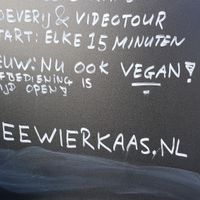 OEVERIJ & VIDEOTOUR
TART: ELKE 15 MINUTEN
EUW: NU OOK VEGAN!
FBEDIENING IS
IJD OPEN!
EEWIERKAAS.NL